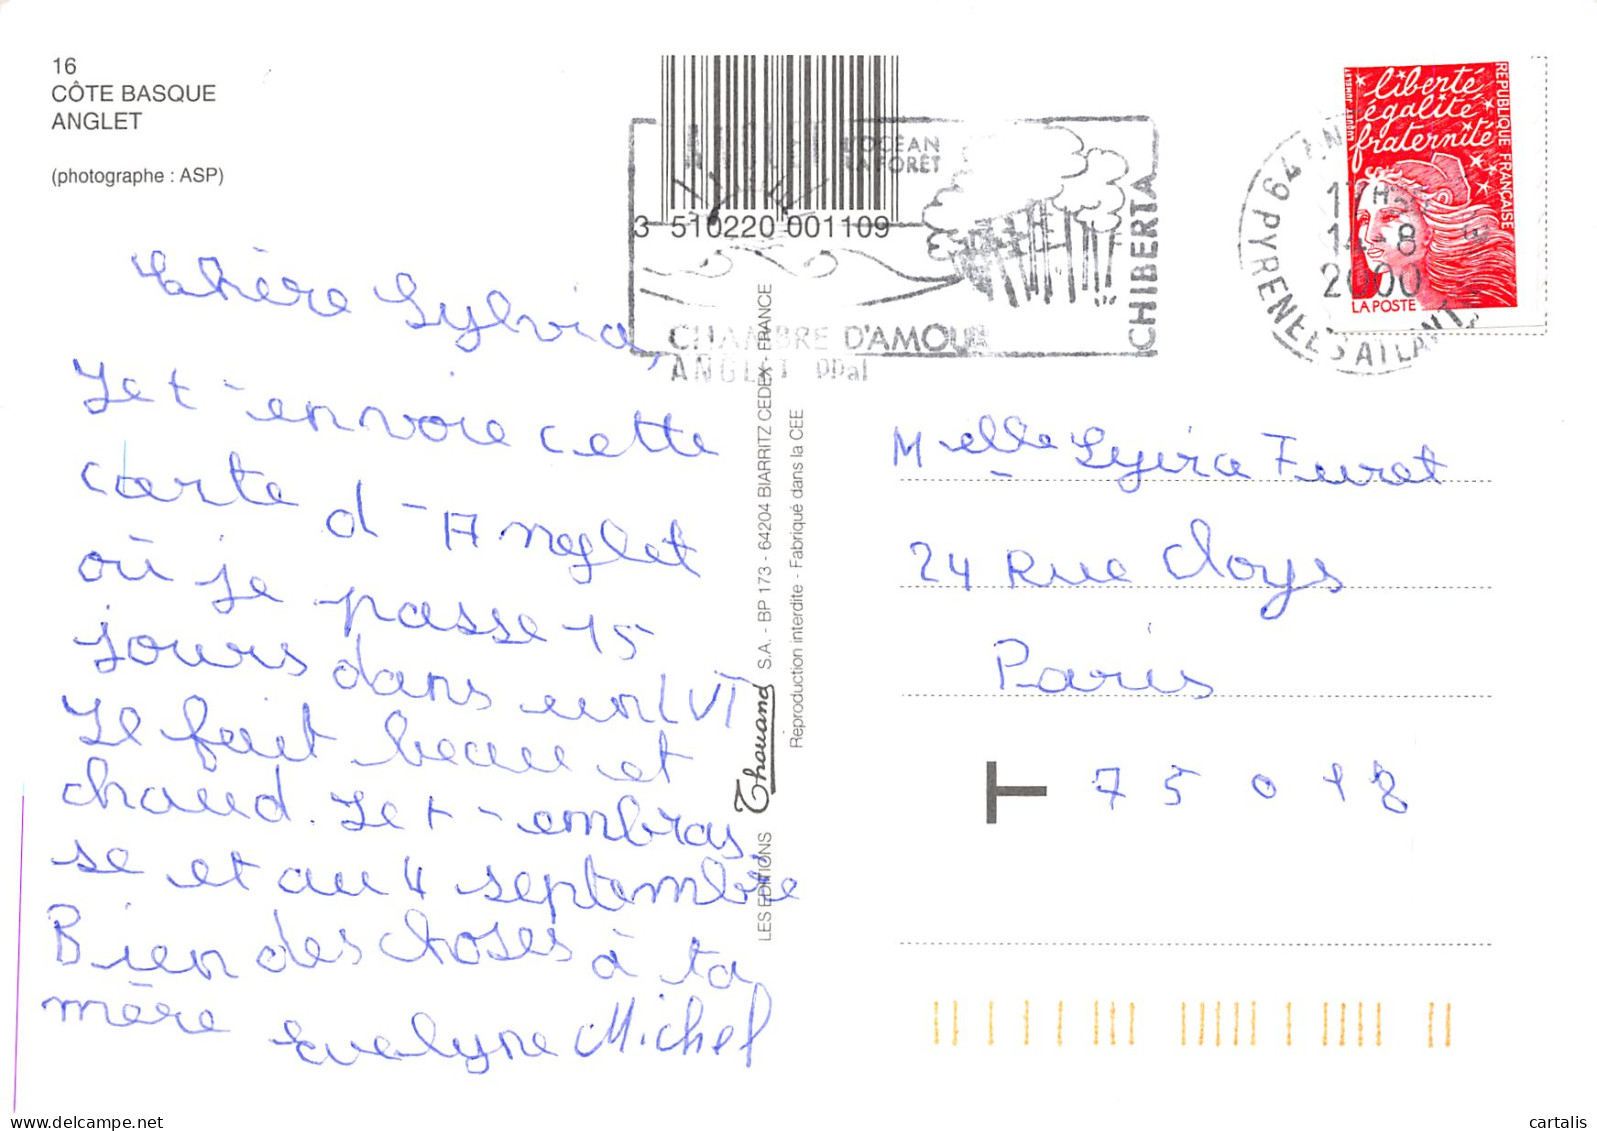 16
CÔTE BASQUE
ANGLET
(photographe : ASP)
3 510220 001109
L'OCÉAN
LA FORÊT
CHIBERTA
CHAMBRE D'AMOUR
ANGLET PPal
64 AN
17H
14-8
2000
PYRENEES ATLANT
liberté
égalité
fraternité
RÉPUBLIQUE FRANÇAISE
LA POSTE
Chère Sylvia,
Je t-envoie cette
carte d-Anglet
où je passe 15
jours dans un VVF
Il fait beau et
chaud. Je t-embras
se et au 4 septembre
Bien des choses à ta
mère Evelyne Michel
LES EDITIONS Thouand S.A. - BP 173 - 64204 BIARRITZ CEDEX - FRANCE
Reproduction interdite - Fabriqué dans la CEE
Melle Sylvia Furet
24 Rue Cloys
Paris
T 75018
cartalis